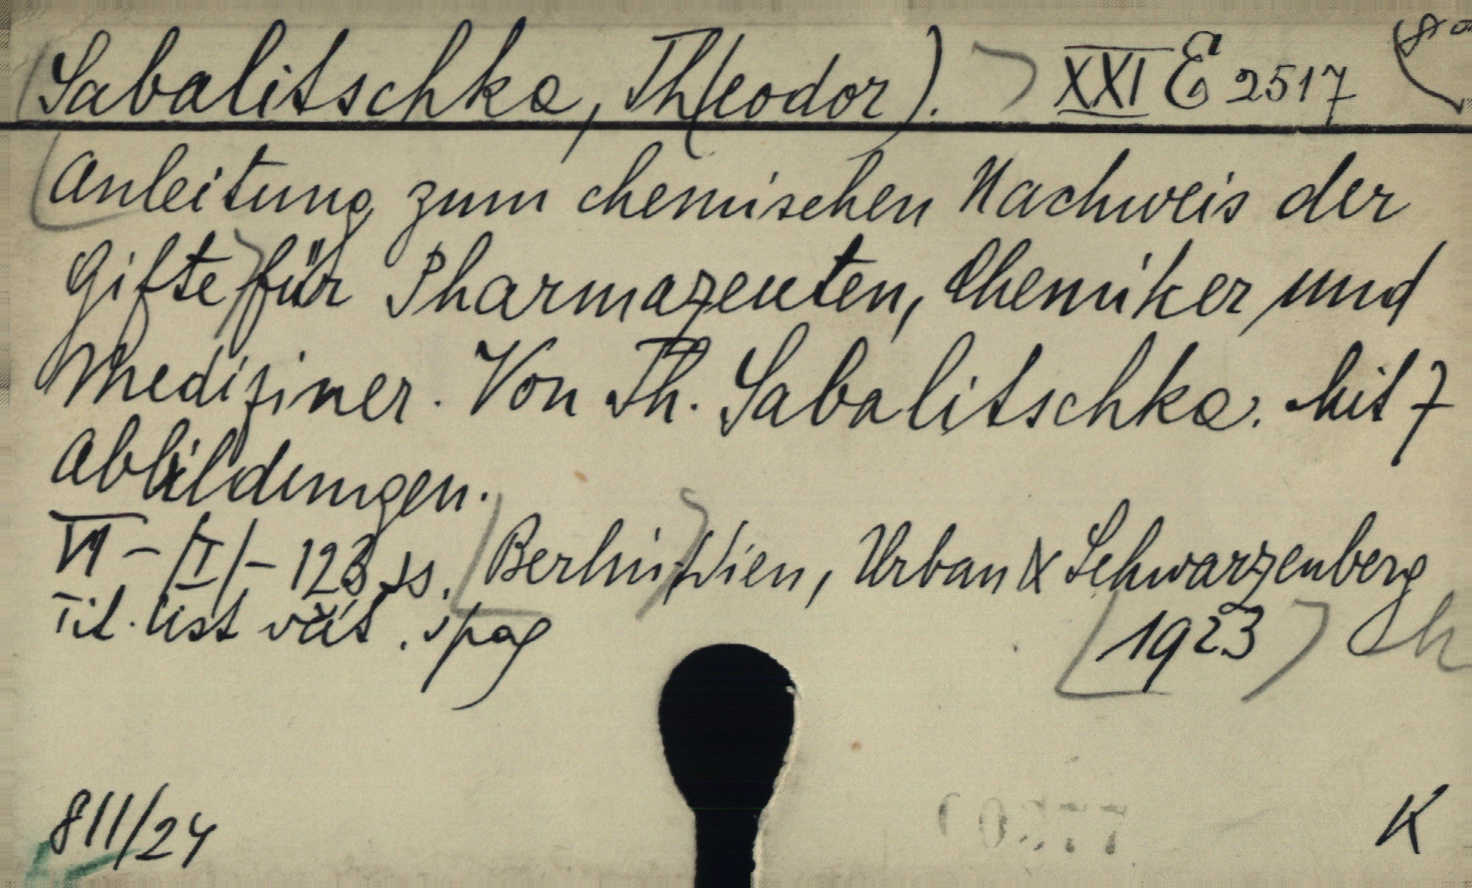 Sabalitschka, Th(eodor). XXI E 2517
Anleitung zum chemischen Nachweis der
Gifte für Pharmazeuten, Chemiker und
Mediziner. Von Th. Sabalitschka. Mit 7
Abbildungen.
VI – /I/ – 123 ss. Berlin-Wien, Urban & Schwarzenberg
Tit. list včít. spag 1923
811/24 K